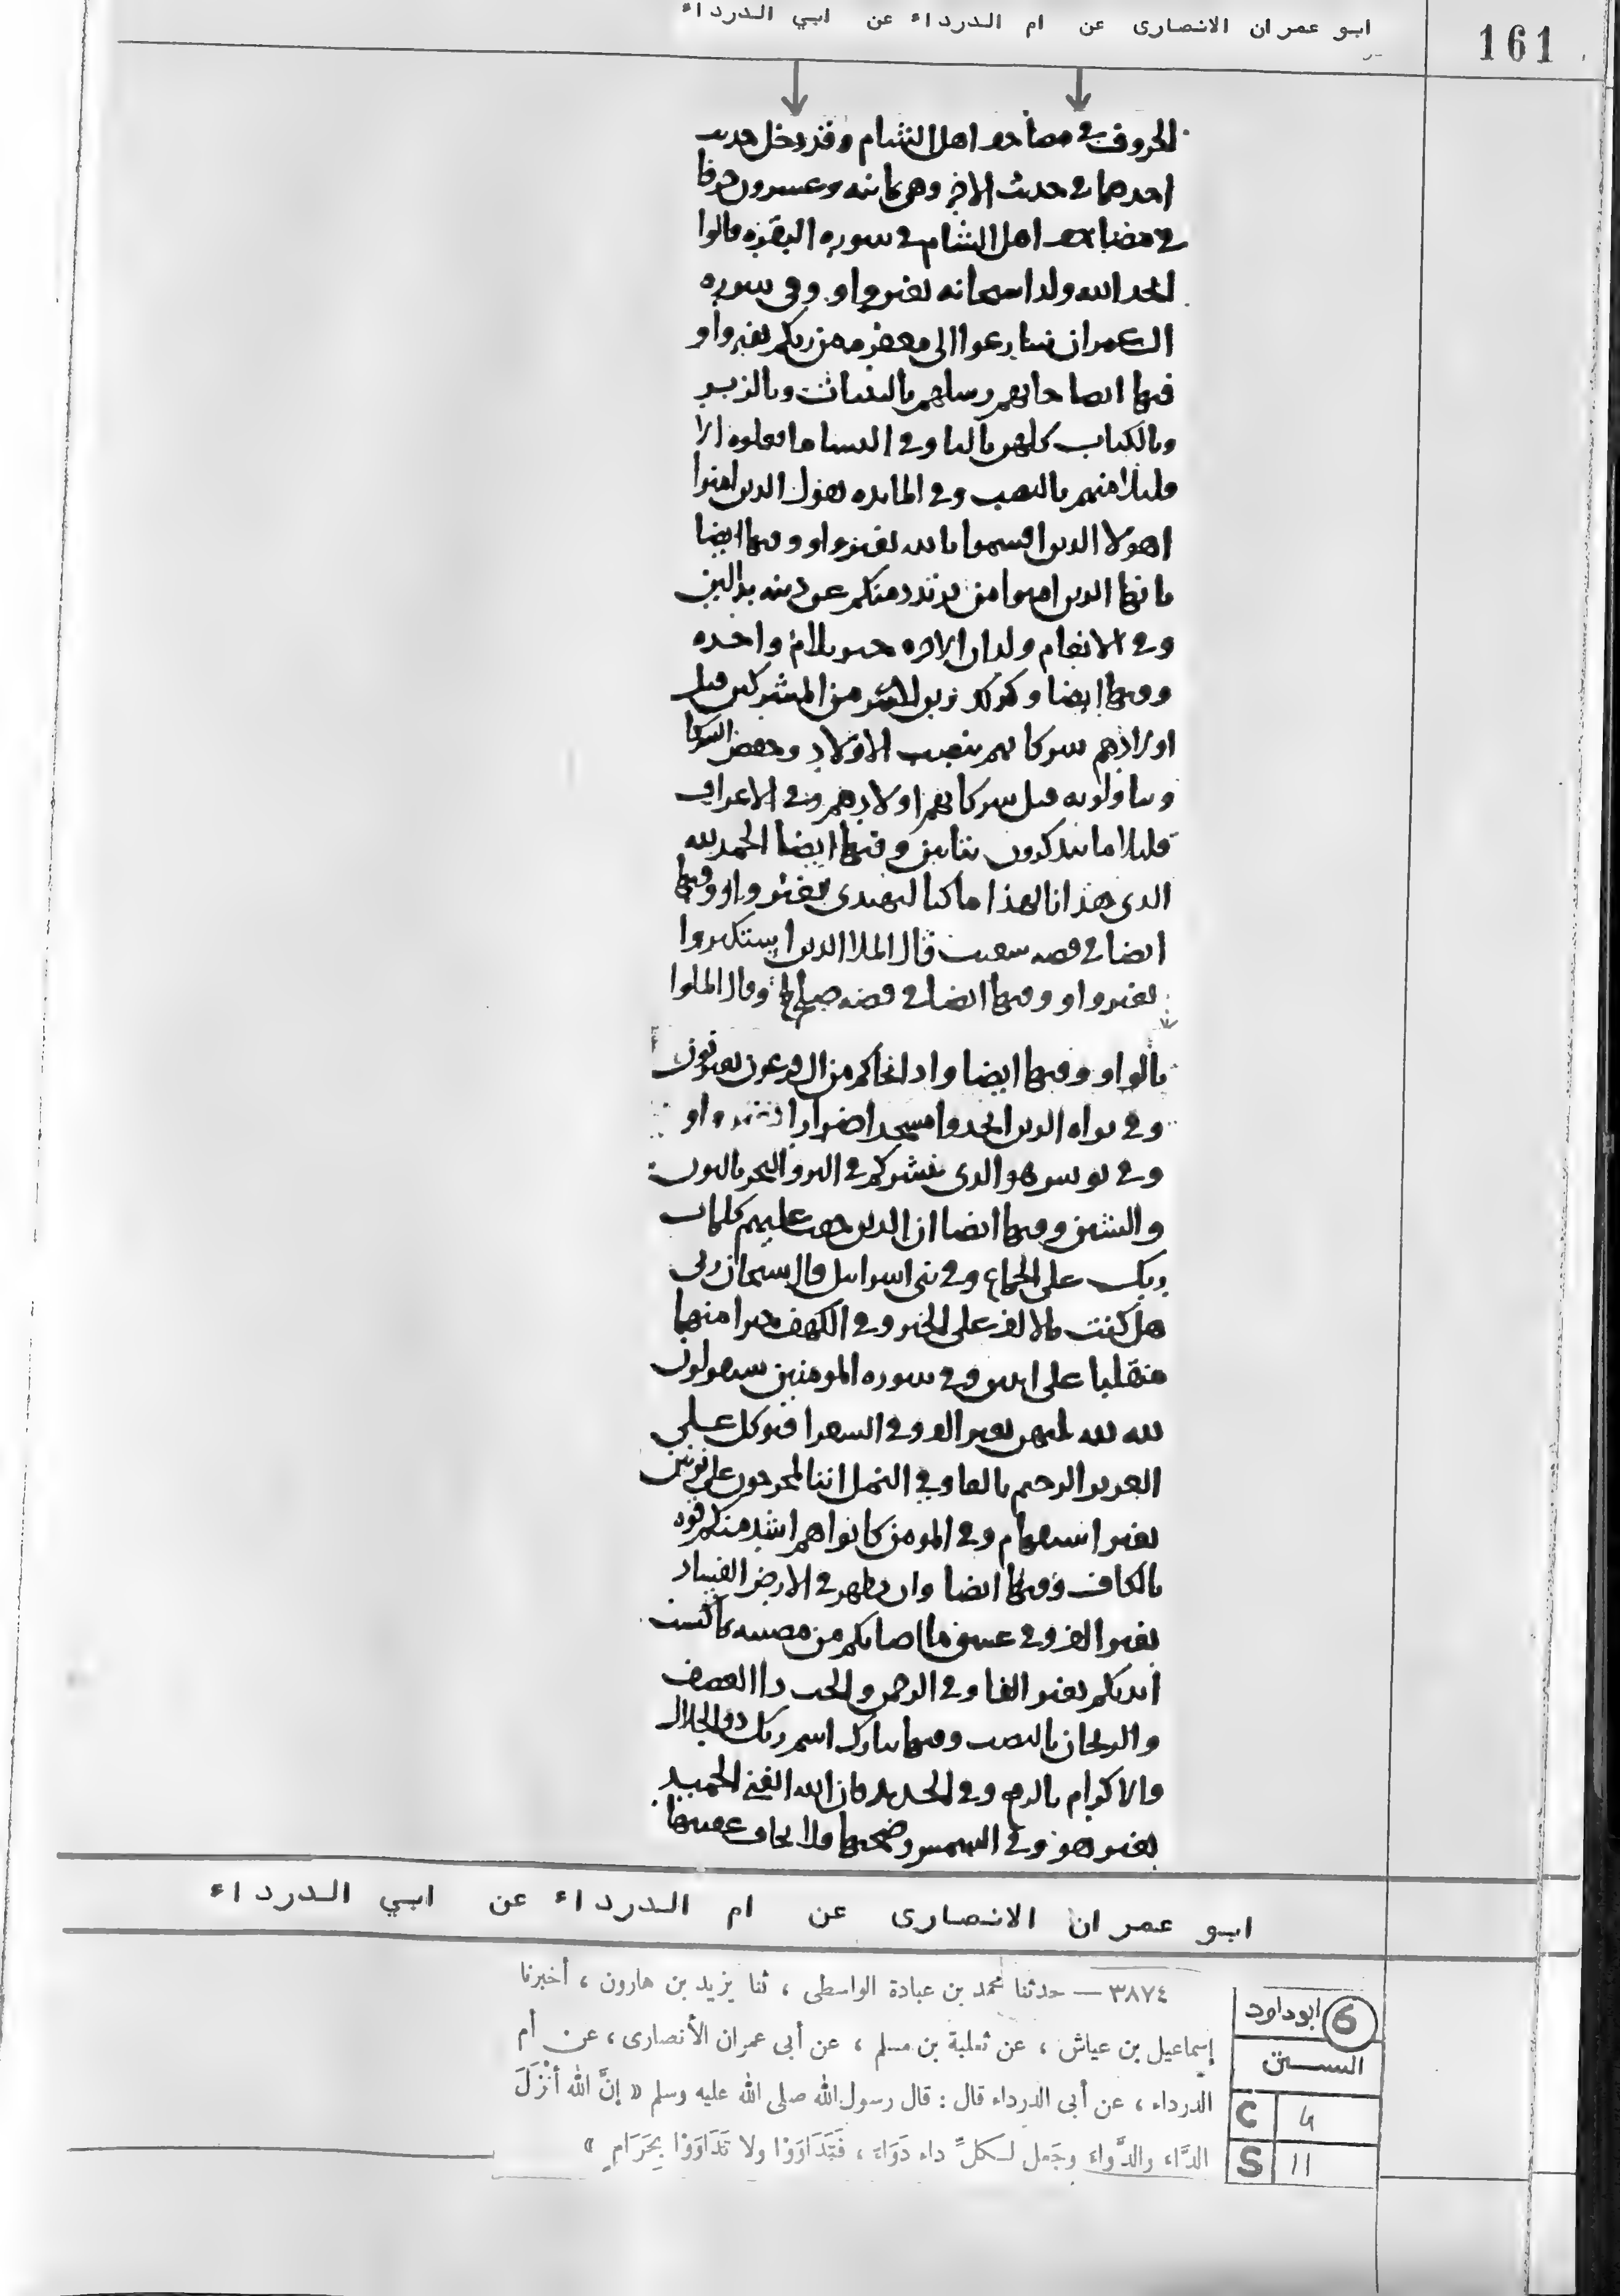 ابو عمران الانصارى عن ام الدرداء عن ابي الدرداء
161
الحروف في مصاحف اهل الشام وقد دخل حديث
احدهما في حديث الاخر وهي ثمانيه وعشرون حرفا
في مصاحف اهل الشام في سوره البقره قالوا
اتخذ الله ولدا سبحانه بغير واو وفي سوره
ال عمران سارعوا الى مغفره من ربكم بغير واو
فيها ايضا جاتهم رسلهم بالبينات وبالزبر
وبالكتاب كلهن بالبا وفي النسا ما فعلوه الا
قليلا منهم بالنصب وفي المايده يقول الذين امنوا
اهولا الذين اقسموا بالله بغير واو وفيها ايضا
يا ايها الذين امنوا من يرتدد منكم عن دينه بدالين
وفي الانعام ولدار الاخره خير بلام واحده
وفيها ايضا وكذلك زين لكثير من المشركين قتل
اولادهم شركائهم بنصب الاولاد وخفض الشركا
ويتاولونه قتل شركائهم اولادهم وفي الاعراف
قليلا ما تتذكرون بتايين وفيها ايضا الحمد لله
الذي هدانا لهذا ما كنا لنهتدي بغير واو وفيها
ايضا في قصه شعيب قال الملا الذين استكبروا
بغير واو وفيها ايضا في قصه صالح وقال الملوا
بالواو وفيها ايضا واذ انجاكم من ال فرعون بغير نون
وفي براه الذين اتخذوا مسجدا ضرارا بغير واو
وفي يونس هو الذي ينشركم في البر والبحر بالنون
والشين وفيها ايضا ان الذين حقت عليهم كلمات
ربك على الجماع وفي بني اسرايل قال سبحان ربي
هل كنت بالالف على الخبر وفي الكهف خيرا منهما
منقلبا على اثنين وفي سوره المومنين سيقولون
لله لله ثلثهن بغير الف وفي الشعرا فتوكل على
العزيز الرحيم بالفا وفي النمل اننا لمخرجون على نونين
بغير استفهام وفي المومن كانوا هم اشد منكم قوه
بالكاف وفيها ايضا وان يظهر في الارض الفساد
بغير الف وفي عسق ما اصابكم من مصيبه بما كسبت
ايديكم بغير الفا وفي الرحمن والحب ذا العصف
والريحان بالنصب وفيها تبارك اسم ربك ذو الجلال
والاكرام بالرفع وفي الحديد فان الله الغني الحميد
بغير هو وفي الشمس وضحيها فلا يخاف عقبيها
ابو عمران الانصارى عن ام الدرداء عن ابي الدرداء
6 ابوداود
السنن
C 4
S 11
٣٨٧٤ — حدثنا محمد بن عبادة الواسطى ، ثنا يزيد بن هارون ، أخبرنا
إسماعيل بن عياش ، عن ثعلبة بن مسلم ، عن أبى عمران الأنصارى ، عن أم
الدرداء ، عن أبى الدرداء قال : قال رسول الله صلى الله عليه وسلم « إنَّ اللهَ أنْزَلَ
الدَّاءَ والدَّواءَ وجَعل لـكلِّ داء دَوَاءَ ، فَتَدَاوَوْا ولا تَدَاوَوْا بِحَرَامٍ »